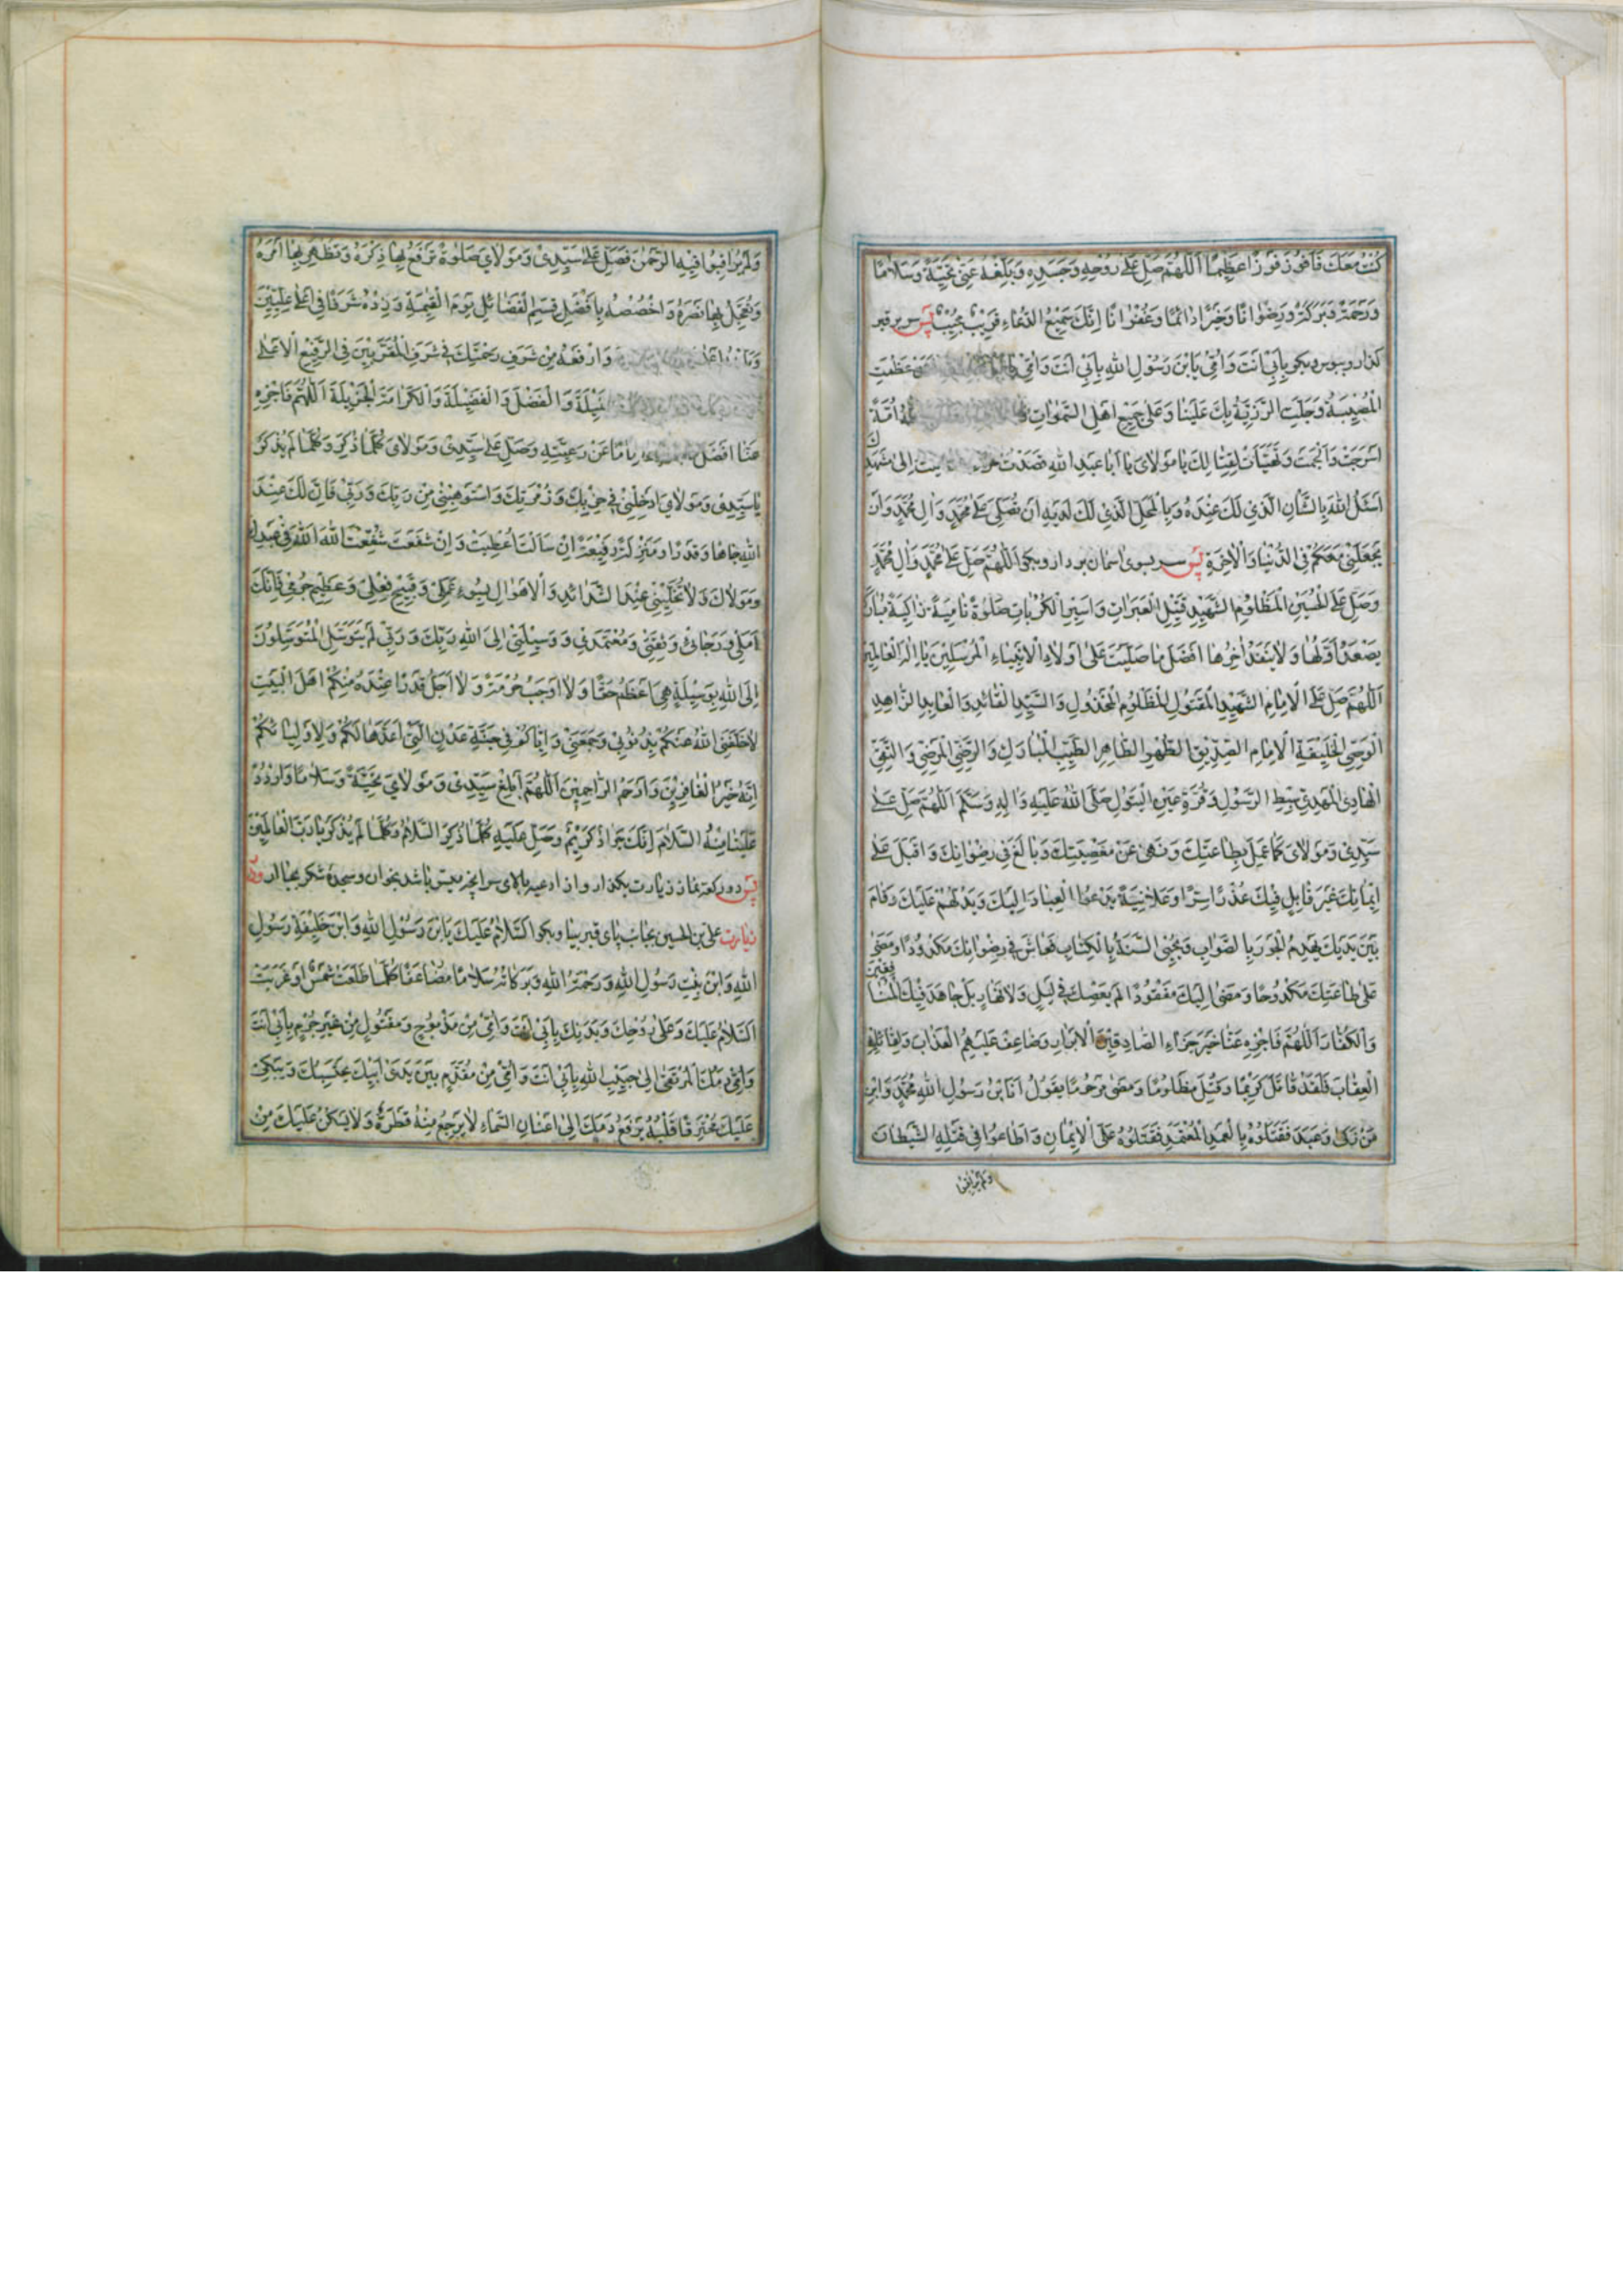 كُنْتُ مَعَكَ فَاَفُوزَ فَوْزًا عَظِيمًا اَللّٰهُمَّ صَلِّ عَلٰى رُوحِهِ وَجَسَدِهِ وَبَلِّغْهُ عَنّي تَحِيَّةً وَسَلَامًا
وَرَحْمَةً وَبَرَكَةً وَرِضْوَانًا وَخَيْرًا دَائِمًا وَغُفْرَانًا اِنَّكَ سَمِيعُ الدُّعَاءِ قَرِيبٌ مُجِيبٌ پس سر بر قبر
كذار وببوس وبكو بِاَبِي اَنْتَ وَاُمّي يَابْنَ رَسُولِ اللّٰهِ بِاَبِي اَنْتَ وَاُمّي عَظُمَتِ
الْمُصِيبَةُ وَجَلَّتِ الرَّزِيَّةُ بِكَ عَلَيْنَا وَعَلٰى جَمِيعِ اَهْلِ السَّمٰوَاتِ اُمَّةً
اَسْرَجَتْ وَاَلْجَمَتْ وَتَهَيَّأَتْ لِقِتَالِكَ يَا مَوْلَايَ يَا اَبَا عَبْدِ اللّٰهِ قَصَدْتُ اِلٰى مَشْهَدِكَ
اَسْئَلُ اللّٰهَ بِالشَّاْنِ الَّذِي لَكَ عِنْدَهُ وَبِالْمَحَلِّ الَّذِي لَكَ لَدَيْهِ اَنْ يُصَلِّيَ عَلٰى مُحَمَّدٍ وَاٰلِ مُحَمَّدٍ وَاَنْ
يَجْعَلَنِي مَعَكُمْ فِي الدُّنْيَا وَالْاٰخِرَةِ پس سر بسوى اسمان بردار وبكو اَللّٰهُمَّ صَلِّ عَلٰى مُحَمَّدٍ وَاٰلِ مُحَمَّدٍ
وَصَلِّ عَلَى الْحُسَيْنِ الْمَظْلُومِ الشَّهِيدِ قَتِيلِ الْعَبَرَاتِ وَاَسِيرِ الْكُرُبَاتِ صَلٰوةً نَامِيَةً زَاكِيَةً مُبَارَكَةً
يَصْعَدُ اَوَّلُهَا وَلَا يَنْفَدُ اٰخِرُهَا اَفْضَلَ مَا صَلَّيْتَ عَلٰى اَوْلَادِ الْاَنْبِيَاءِ الْمُرْسَلِينَ يَا اِلٰهَ الْعَالَمِينَ
اَللّٰهُمَّ صَلِّ عَلَى الْاِمَامِ الشَّهِيدِ الْمَقْتُولِ الْمَظْلُومِ الْمَخْذُولِ وَالسَّيِّدِ الْقَائِدِ وَالْعَابِدِ الزَّاهِدِ
الْوَصِيِّ الْخَلِيفَةِ الْاِمَامِ الصِّدِّيقِ الطُّهْرِ الطَّاهِرِ الطَّيِّبِ الْمُبَارَكِ وَالرَّضِيِّ الْمَرْضِيِّ وَالتَّقِيِّ
الْهَادِي الْمَهْدِيِّ سِبْطِ الرَّسُولِ وَقُرَّةِ عَيْنِ الْبَتُولِ صَلَّى اللّٰهُ عَلَيْهِ وَاٰلِهِ وَسَلَّمَ اَللّٰهُمَّ صَلِّ عَلٰى
سَيِّدِي وَمَوْلَايَ كَمَا عَمِلَ بِطَاعَتِكَ وَنَهٰى عَنْ مَعْصِيَتِكَ وَبَالَغَ فِي رِضْوَانِكَ وَاَقْبَلَ عَلٰى
اِيمَانِكَ غَيْرَ قَابِلٍ فِيكَ عُذْرًا سِرًّا وَعَلَانِيَةً يَدْعُو الْعِبَادَ اِلَيْكَ وَيَدُلُّهُمْ عَلَيْكَ وَقَامَ
بَيْنَ يَدَيْكَ يَهْدِمُ الْجَوْرَ بِالصَّوَابِ وَيُحْيِي السُّنَّةَ بِالْكِتَابِ فَعَاشَ فِي رِضْوَانِكَ مَكْدُودًا وَمَضٰى
عَلٰى طَاعَتِكَ مَكْدُوحًا وَمَضٰى اِلَيْكَ مَفْقُودًا لَمْ يَعْصِكَ فِي لَيْلٍ وَلَا نَهَارٍ بَلْ جَاهَدَ فِيكَ الْمُنَافِقِينَ
وَالْكُفَّارَ اَللّٰهُمَّ فَاجْزِهِ عَنَّا خَيْرَ جَزَاءِ الصَّادِقِينَ الْاَبْرَارِ وَضَاعِفْ عَلَيْهِمُ الْعَذَابَ وَلِقَاتِلِهِ
الْعِقَابَ فَلَقَدْ قَاتَلَ كَرِيمًا وَقُتِلَ مَظْلُومًا وَمَضٰى مَرْحُومًا يَقُولُ اَنَا ابْنُ رَسُولِ اللّٰهِ مُحَمَّدٍ وَابْنُ
مَنْ زَكٰى وَعَبَدَ فَقَتَلُوهُ بِالْعَمْدِ الْمُعْتَمَدِ قَتَلُوهُ عَلَى الْاِيمَانِ وَاَطَاعُوا فِي قَتْلِهِ الشَّيْطَانَ
ولم يراقبوا
وَلَمْ يُرَاقِبُوا فِيهِ الرَّحْمٰنَ فَصَلِّ عَلٰى سَيِّدِي وَمَوْلَايَ صَلٰوةً تَرْفَعُ بِهَا ذِكْرَهُ وَتُظْهِرُ بِهَا اَمْرَهُ
وَتُعَجِّلُ بِهَا نَصْرَهُ وَاخْصُصْهُ بِاَفْضَلِ قِسَمِ الْفَضَائِلِ يَوْمَ الْقِيٰمَةِ وَزِدْهُ شَرَفًا فِي اَعْلٰى عِلِّيِّينَ
وَبَلِّغْهُ اَعْلٰى وَارْفَعْهُ مِنْ شَرَفِ رَحْمَتِكَ فِي شَرَفِ الْمُقَرَّبِينَ فِي الرَّفِيعِ الْاَعْلٰى
وَالْفَضْلَ وَالْفَضِيلَةَ وَالْكَرَامَةَ الْجَزِيلَةَ اَللّٰهُمَّ فَاجْزِهِ
عَنَّا اَفْضَلَ اِمَامًا عَنْ رَعِيَّتِهِ وَصَلِّ عَلٰى سَيِّدِي وَمَوْلَايَ كُلَّمَا ذُكِرَ وَكُلَّمَا لَمْ يُذْكَرْ
يَا سَيِّدِي وَمَوْلَايَ اَدْخِلْنِي فِي حِزْبِكَ وَزُمْرَتِكَ وَاسْتَوْهِبْنِي مِنْ رَبِّكَ وَرَبِّي فَاِنَّ لَكَ عِنْدَ
اللّٰهِ جَاهًا وَقَدْرًا وَمَنْزِلَةً رَفِيعَةً اِنْ سَاَلْتَ اُعْطِيتَ وَاِنْ شَفَعْتَ شُفِّعْتَ اَللّٰهَ اَللّٰهَ فِي عَبْدِكَ
وَمَوْلَاكَ وَلَا تُخَلِّنِي عِنْدَ الشَّدَائِدِ وَالْاَهْوَالِ لِسُوءِ عَمَلِي وَقَبِيحِ فِعْلِي وَعَظِيمِ جُرْمِي فَاِنَّكَ
اَمَلِي وَرَجَائِي وَثِقَتِي وَمُعْتَمَدِي وَوَسِيلَتِي اِلَى اللّٰهِ رَبِّكَ وَرَبِّي لَمْ يَتَوَسَّلِ الْمُتَوَسِّلُونَ
اِلَى اللّٰهِ بِوَسِيلَةٍ هِيَ اَعْظَمُ حَقًّا وَلَا اَوْجَبُ حُرْمَةً وَلَا اَجَلُّ قَدْرًا عِنْدَهُ مِنْكُمْ اَهْلَ الْبَيْتِ
لَا خَلَّفَنِي اللّٰهُ عَنْكُمْ بِذُنُوبِي وَجَمَعَنِي وَاِيَّاكُمْ فِي جَنَّةِ عَدْنٍ الَّتِي اَعَدَّهَا لَكُمْ وَلِاَوْلِيَائِكُمْ
اِنَّهُ خَيْرُ الْغَافِرِينَ وَاَرْحَمُ الرَّاحِمِينَ اَللّٰهُمَّ اَبْلِغْ سَيِّدِي وَمَوْلَايَ تَحِيَّةً وَسَلَامًا وَارْدُدْ
عَلَيْنَا مِنْهُ السَّلَامَ اِنَّكَ جَوَادٌ كَرِيمٌ وَصَلِّ عَلَيْهِ كُلَّمَا ذُكِرَ السَّلَامُ وَكُلَّمَا لَمْ يُذْكَرْ يَا رَبَّ الْعَالَمِينَ
پس دو ركعت نماز زيارت بكذار واز ادعيه بالاى سر انچه ميسر باشد بخوان وسجده شكر بجا ار
زيارت على بن الحسين بجانب پاى قبر بيا وبكو اَلسَّلَامُ عَلَيْكَ يَابْنَ رَسُولِ اللّٰهِ وَابْنَ خَلِيفَةِ رَسُولِ
اللّٰهِ وَابْنَ بِنْتِ رَسُولِ اللّٰهِ وَرَحْمَةُ اللّٰهِ وَبَرَكَاتُهُ سَلَامًا مُضَاعَفًا كُلَّمَا طَلَعَتْ شَمْسٌ اَوْ غَرَبَتْ
اَلسَّلَامُ عَلَيْكَ وَعَلٰى رُوحِكَ وَبَدَنِكَ بِاَبِي اَنْتَ وَاُمّي مِنْ مَذْبُوحٍ وَمَقْتُولٍ مِنْ غَيْرِ جُرْمٍ بِاَبِي اَنْتَ
وَاُمّي دَمُكَ الْمُرْتَقٰى اِلٰى حَبِيبِ اللّٰهِ بِاَبِي اَنْتَ وَاُمّي مِنْ مُقَدَّمٍ بَيْنَ يَدَيْ اَبِيكَ يَحْتَسِبُكَ وَيَبْكِي
عَلَيْكَ مُحْتَرِقًا قَلْبُهُ يَرْفَعُ دَمَكَ اِلٰى اَعْنَانِ السَّمَاءِ لَا يَرْجِعُ مِنْهُ قَطْرَةٌ وَلَا يَسْكُنُ عَلَيْكَ مِنْ